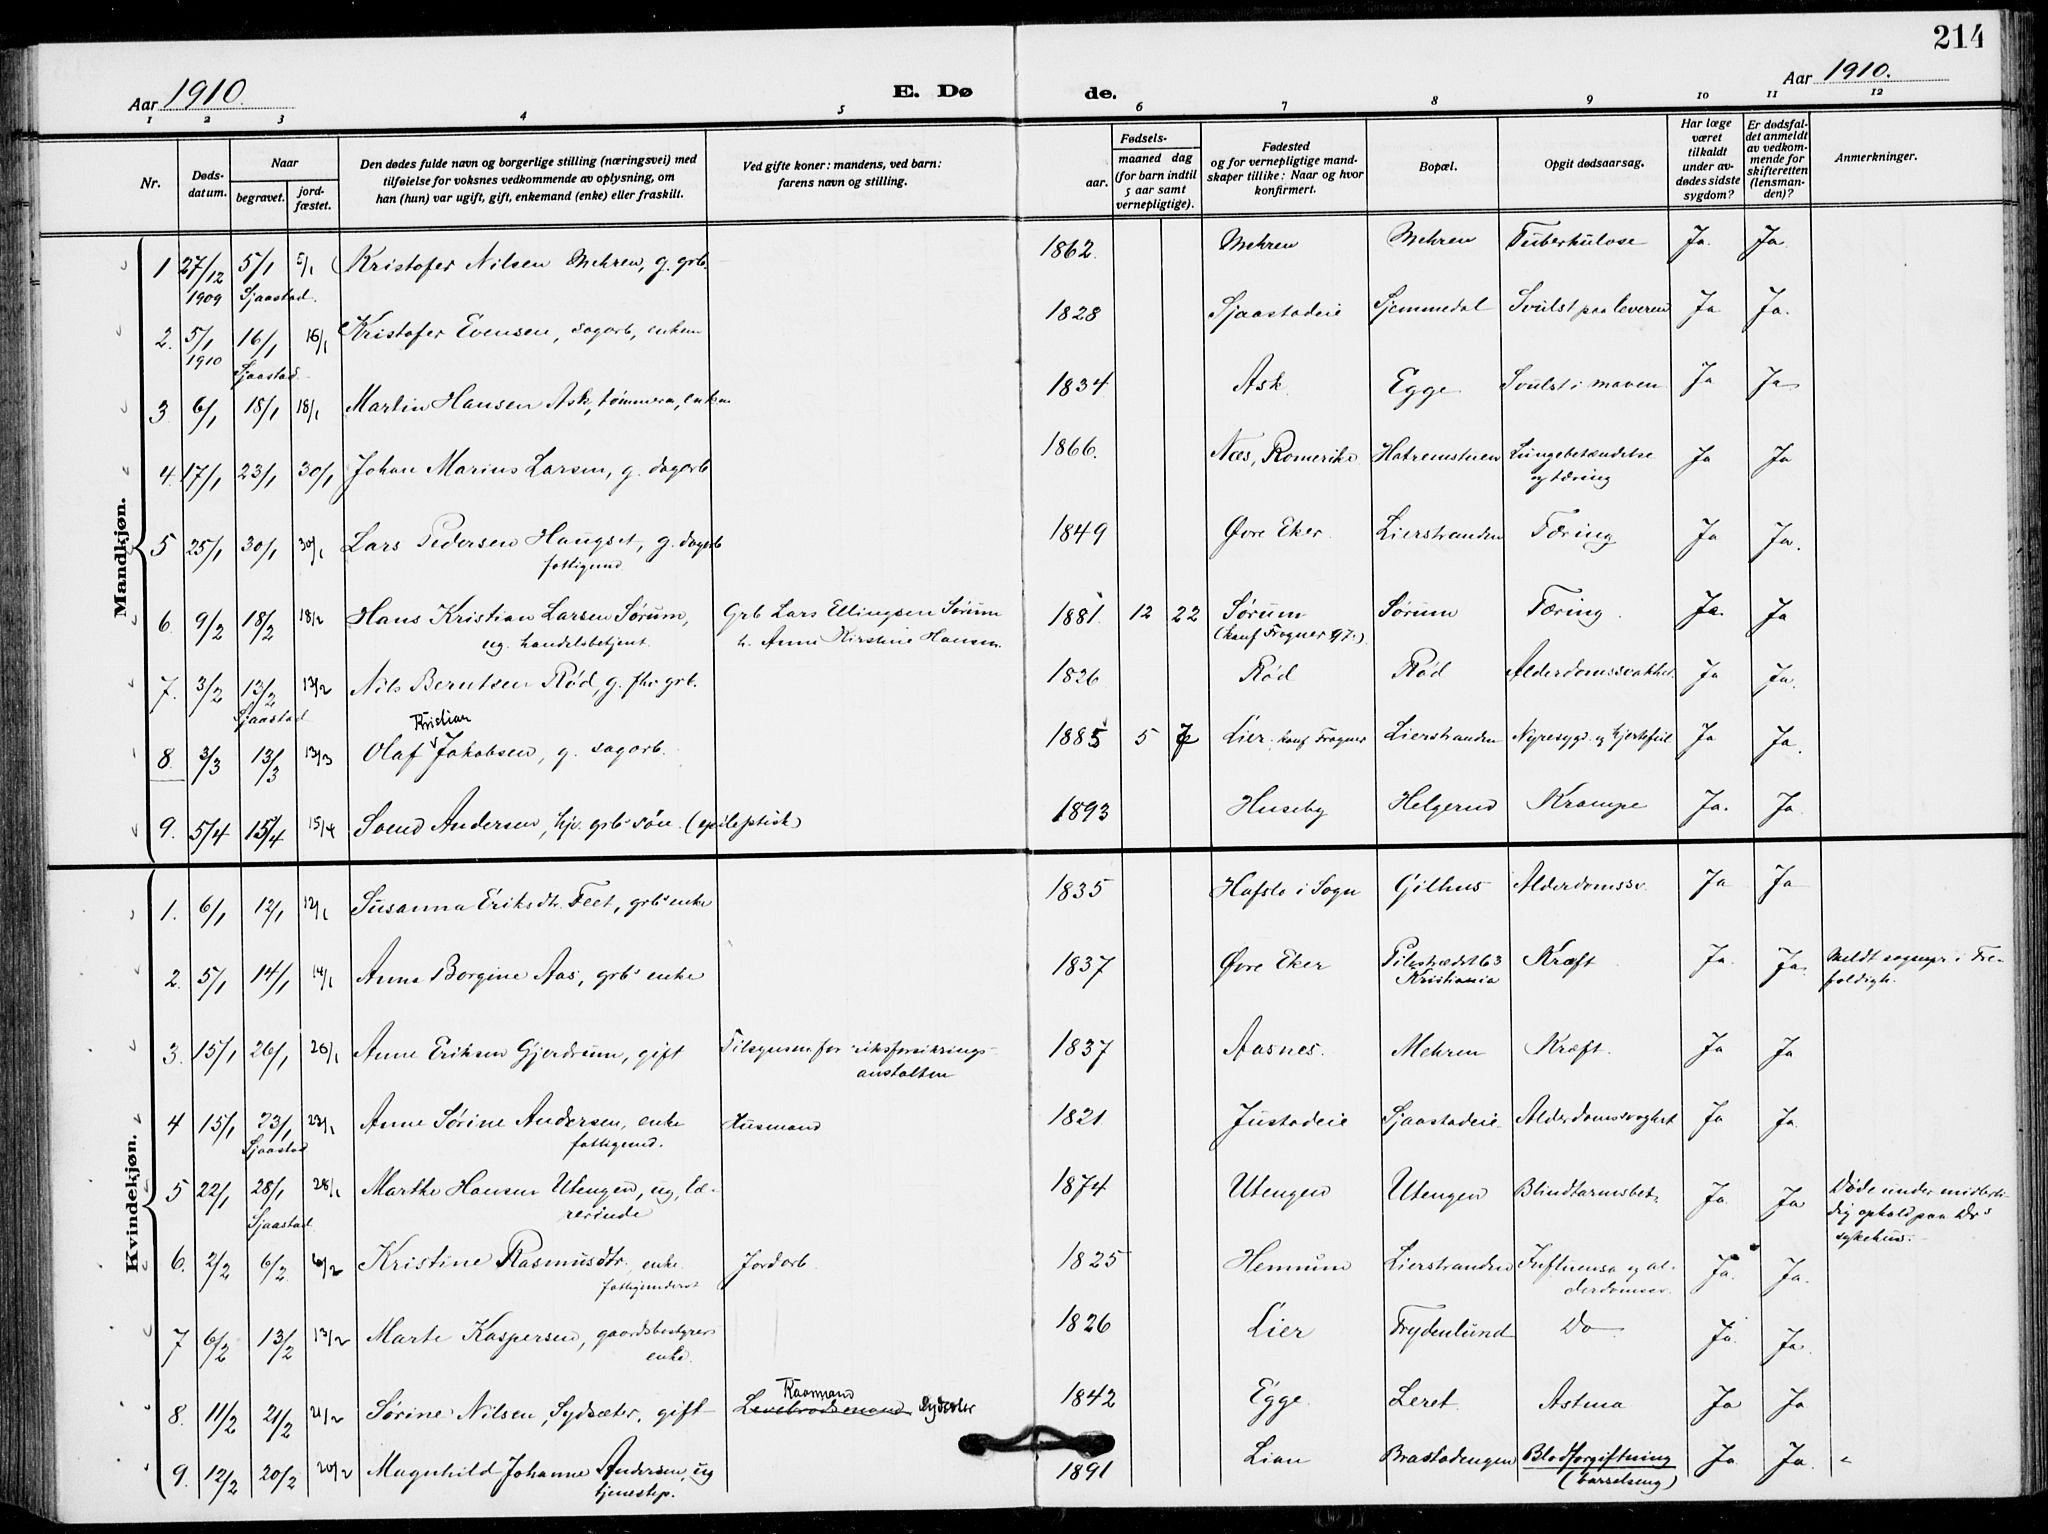 214
Aar 1910.
E. Dø
de.
Aar 1910.
1 2 3 4 5 6 7 8 9 10 11 12
Nr.
Døds-
datum.
Naar
begravet.
jord-
fæstet.
Den dødes fulde navn og borgerlige stilling (næringsvei) med
tilføielse for voksnes vedkommende av oplysning, om
han (hun) var ugift, gift, enkemand (enke) eller fraskilt.
Ved gifte koner: mandens, ved barn:
farens navn og stilling.
Fødsels-
aar.
maaned dag
(for barn indtil
5 aar samt
vernepligtige).
Fødested
og for vernepligtige mand-
skaper tillike: Naar og hvor
konfirmert.
Bopæl.
Opgit dødsaarsag.
Har læge
været
tilkaldt
under av-
dødes sidste
sygdom?
Er dødsfal-
det anmeldt
av vedkom-
mende for
skifteretten
(lensman-
den)?
Anmerkninger.
Mandkjøn.
1 27/12 5/1 5/1 Kristofer Nilsen Mehren, g. grb. 1862. Mehren Mehren Tuberkulose Ja. Ja
1909 Sjaastad.
2. 5/1 16/1 16/1 Kristofer Evensen, sagarb, enkem 1828 Sjaastadeie Gjemmedal Svulst paa leveren Ja Ja.
1910 Sjaastad.
3 6/1 18/1 18/1 Martin Hansen Ask, tømmerm, enkem 1834 Ask Egge Svulst i maven Ja Ja
4. 17/1 23/1 30/1 Johan Marius Larsen, g. dagarb 1866. Næs, Romerike Lungebetændelse Ja Ja
og tæring
5 25/1 30/1 30/1 Lars Pedersen Haugset, g. dagarb 1849 Øvre Eker. Lierstranden Tæring Ja Ja.
fattigund.
6. 9/2 18/2 18/2 Hans Kristian Larsen Sørum, Grb Lars Ellingsen Sørum 1881. 12 22 Sørum Sørum Tæring. Ja. Ja
ug. handelsbetjent. h. Anne Kirstine Hansen. (konf Frogner 97.)
7. 3/2 13/2 13/2 Nils Berntsen Rød, g. fhv grb. 1826 Rød Rød Alderdomssvakhet Ja Ja.
Sjaastad
Kristian
8. 3/3 13/3 13/3 Olaf Jakobsen, g. sagarb. 1885 5 7 Lier. konf Frogner Lierstranden Nyresygd. og hjertefeil Ja Ja.
9. 5/4 15/4 15/4 Svend Andersen, hjv. grbs søn. (epileptisk) 1893 Huseby Helgerud Krampe Ja. Ja.
Kvindekjøn.
1. 6/1 12/1 12/1 Susanna Eriksdtr. Feet, grbs enke 1835 Hafslo i Sogn Gilhus Alderdomssv. Ja Ja
2. 5/1 14/1 14/1 Anna Borgine Aas, grbs enke 1837 Øvre Eker Pilestrædet 63 Kræft Ja. Ja. Meldt sognepr i Tre-
Kristiania foldigh.
3. 15/1 26/1 26/1 Anne Eriksen Gjerdrum, gift Tilsynsm for riksforsikrings- 1837 Aasnes. Mehren Kræft. Ja Ja
anstalten
4 15/1 23/1 23/1 Anne Sørine Andersen, enke Husmand 1821 Justadeie Sjaastadeie. Alderdomssvaghet Ja Ja
Sjaastad fattigund.
5 22/1 28/1 28/1 Marthe Hansen Utengen, ug, læ- 1874 Utengen Utengen Blindtarmsbet. Ja. Ja Døde under midlerti-
Sjaastad rerinde dig ophold paa Drs
sykehus.
6. 2/2 6/2 6/2 Kristine Rasmusdtr. enke Jordarb. 1825 Hennum Lierstranden Influensa og al- Ja. Ja.
fattigunderst derdomssv.
7 6/2 13/2 13/2 Marte Kaspersen, gaardsbestyrer 1826 Lier Frydenlund Do Ja. Ja.
enke.
Kaarmand
8. 11/2 21/2 21/2 Sørine Nilsen, Sydsæter, gift Levebrødsmand 1842 Egge. Leret. Astma Ja Ja
9. 12/2 20/2 20/2 Magnhild Johanne Andersen, ug 1891 Lian Brastadengen Blodforgiftning Ja. Ja.
tjenestep. (barselseng)